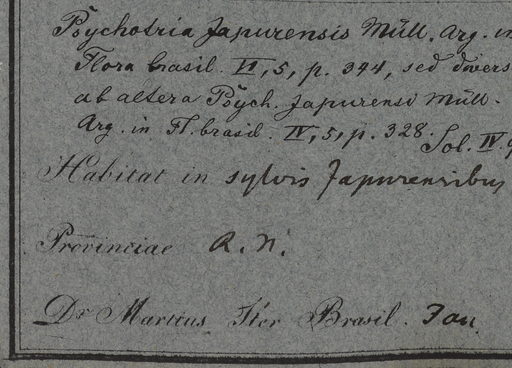 Psychotria Japurensis Müll. Arg. in
Flora brasil. VI, 5, p. 344, sed divers
ab altera Psych. Japurensi Müll.
Arg. in Fl. brasil. IV, 5, p. 328.
Sol. IV.
Habitat in sylvis Japurensibus
Provinciae R. N.
Dr Martius Iter Brasil. Jan.